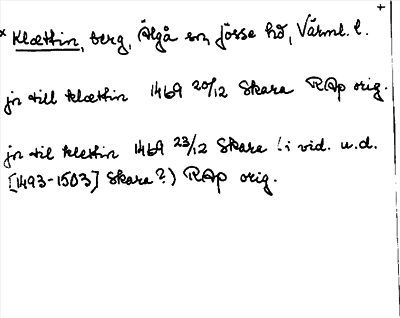 +
× Klættin, berg, Älgå sn, Jösse hd, Värml. l.
jn till klættin 1469 20/12 Skara RAp orig.
jn til klettin 1469 23/12 Skara (i vid. u.d.
[1493-1503] Skara?) RAp orig.